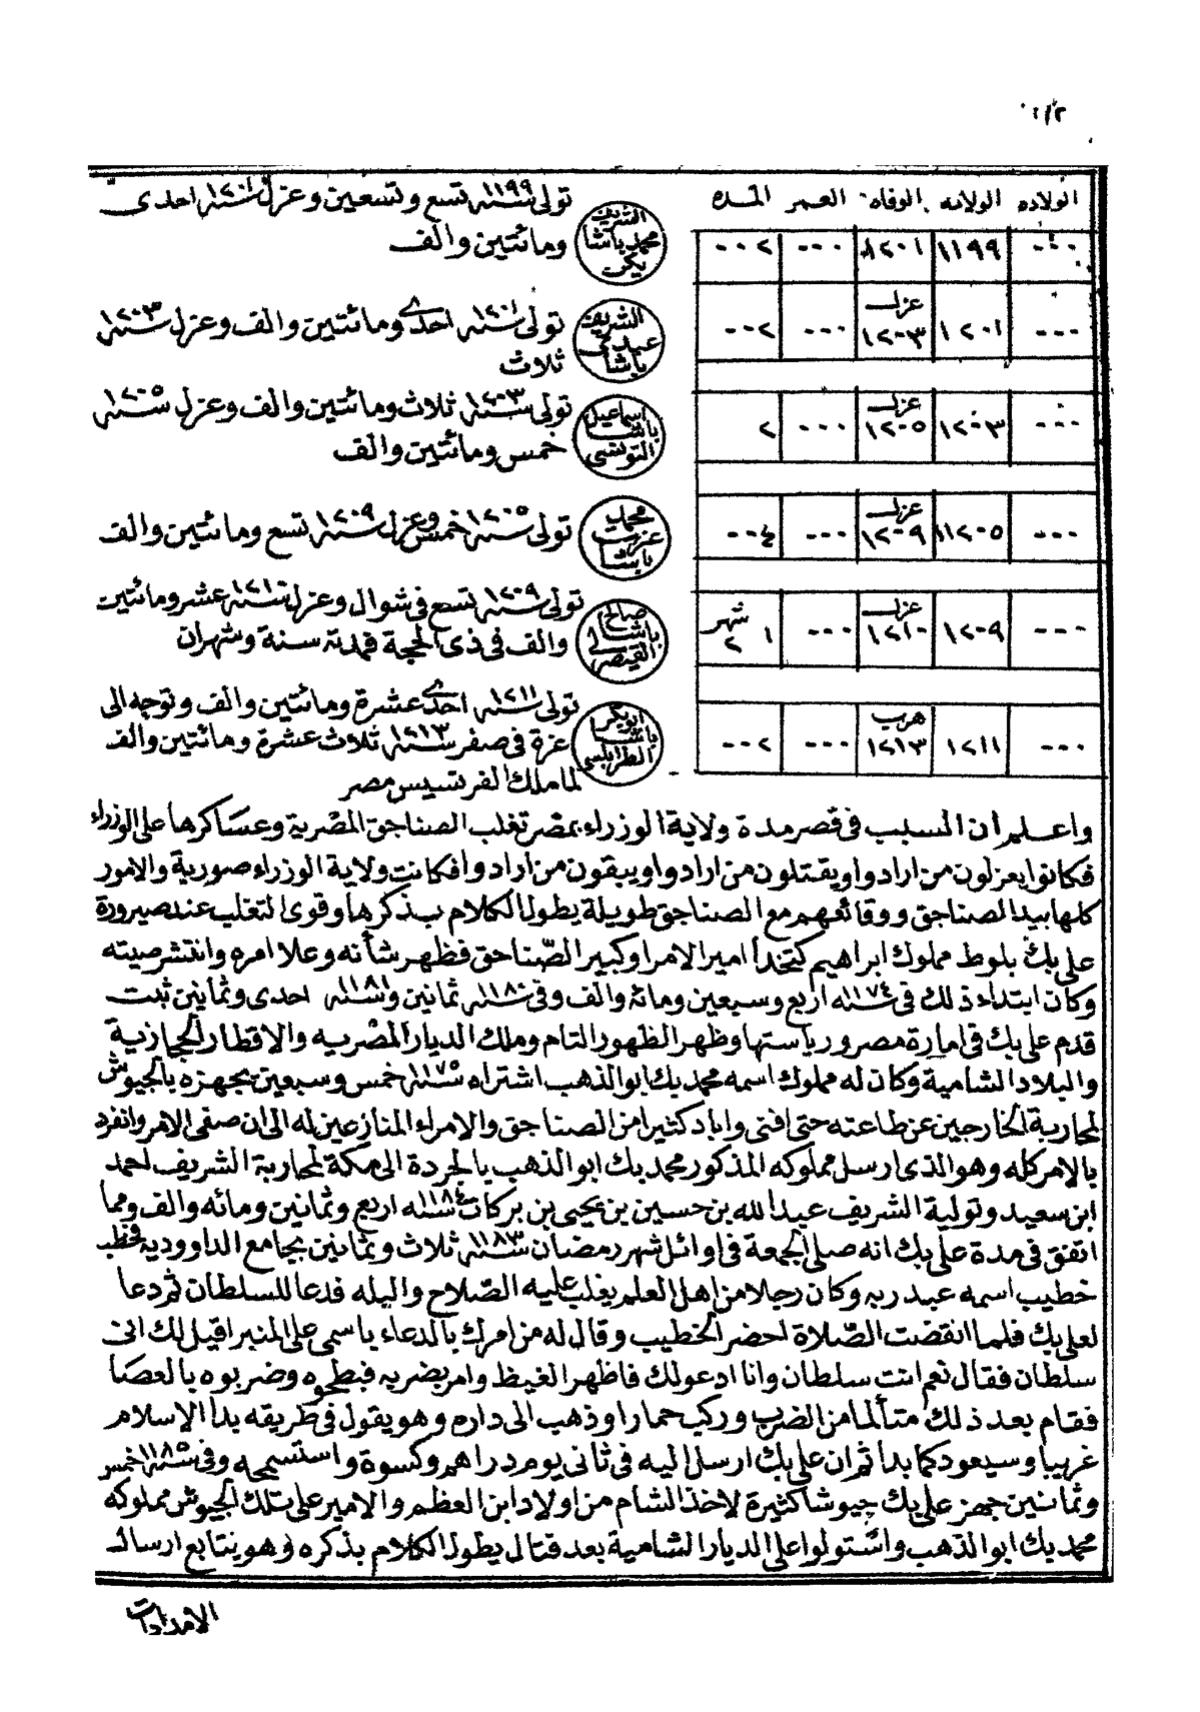 الولاده الولايه الوفاه العمر المده
--- ١١٩٩ ١٢٠١ --- ٢--
الشريف محمد باشا يكن
تولى سنة ١١٩٩ تسع وتسعين وعزل سنة ١٢٠١ احدى
ومائتين والف
--- ١٢٠١ عزل ١٢٠٣ --- ٢--
الشريف عبدي باشا
تولى سنة ١٢٠١ احدى ومائتين والف وعزل سنة ١٢٠٣
ثلاث
--- ١٢٠٣ عزل ١٢٠٥ --- ٢
اسماعيل باشا التونسى
تولى سنة ١٢٠٣ ثلاث ومائتين والف وعزل سنة ١٢٠٥
خمس ومائتين والف
--- ١٢٠٥ عزل ١٢٠٩ --- ٤--
محمد عزت باشا
تولى سنة ١٢٠٥ خمس وعزل سنة ١٢٠٩ تسع ومائتين والف
--- ١٢٠٩ عزل ١٢١٠ --- ١ شهر ٢
صالح باشا القيصرلى
تولى سنة ١٢٠٩ تسع فى شوال وعزل سنة ١٢١٠ عشر ومائتين
والف فى ذى الحجة فمدته سنة وشهران
--- ١٢١١ هرب ١٢١٣ --- ٢--
ابو بكر باشا الطرابلسى
تولى سنة ١٢١١ احدى عشرة ومائتين والف وتوجه الى
غزة فى صفر سنة ١٢١٣ ثلاث عشرة ومائتين والف
لما ملك الفرنسيس مصر
واعلم ان السبب فى قصر مدة ولاية الوزراء بمصر تغلب الصناجق المصرية وعساكرها على الوزراء
فكانوا يعزلون من ارادوا ويقتلون من ارادوا ويبقون من ارادوا فكانت ولاية الوزراء صورية والامور
كلها بيد الصناجق ووقائعهم مع الصناجق طويلة يطول الكلام بذكرها وقوى التغلب عند صيرورة
على بك بلوط مملوك ابراهيم كتخدا امير الامرا وكبير الصناجق فظهر شأنه وعلا امره وانتشر صيته
وكان ابتداء ذلك فى سنة ١١٧٤ اربع وسبعين ومائه والف وفى سنة ١١٨٠ ثمانين وسنة ١١٨١ احدى وثمانين ثبت
قدم على بك فى امارة مصر ورياستها وظهر الظهور التام وملك الديار المصريه والاقطار الحجازية
والبلاد الشامية وكان له مملوك اسمه محمد بك ابو الذهب اشتراه سنة ١١٧٥ خمس وسبعين يجهزه بالجيوش
لمحاربة الخارجين عن طاعته حتى افنى واباد كثيرا من الصناجق والامراء المنازعين له الى ان صفى الامر وانفرد
بالامر كله وهو الذى ارسل مملوكه المذكور محمد بك ابو الذهب بالجردة الى مكة لمحاربة الشريف احمد
ابن سعيد وتولية الشريف عبد الله بن حسين بن يحيى بن بركات سنة ١١٨٤ اربع وثمانين ومائه والف ومما
اتفق فى مدة على بك انه صلى الجمعة فى اوائل شهر رمضان سنة ١١٨٣ ثلاث وثمانين بجامع الداووديه فخطب
خطيب اسمه عبد ربه وكان رجلا من اهل العلم يغلب عليه الصلاح والبله فدعا للسلطان ثم دعا
لعلى بك فلما انقضت الصلاة احضر الخطيب وقال له من امرك بالدعاء باسمى على المنبر اقيل لك انى
سلطان فقال نعم انت سلطان وانا ادعو لك فاظهر الغيظ وامر بضربه فبطحوه وضربوه بالعصا
فقام بعد ذلك متألما من الضرب وركب حمارا وذهب الى داره وهو يقول فى طريقه بدا الاسلام
غريبا وسيعود كما بدا ثم ان على بك ارسل اليه فى ثانى يوم دراهم وكسوة واستسمحه وفى سنة ١١٨٥ خمس
وثمانين جهز على بك جيوشا كثيرة لاخذ الشام من اولاد ابن العظم والامير على تلك الجيوش مملوكه
محمد بك ابو الذهب واستولوا على الديار الشامية بعد قتال يطول الكلام بذكره وهو يتابع ارسال
الامدادات